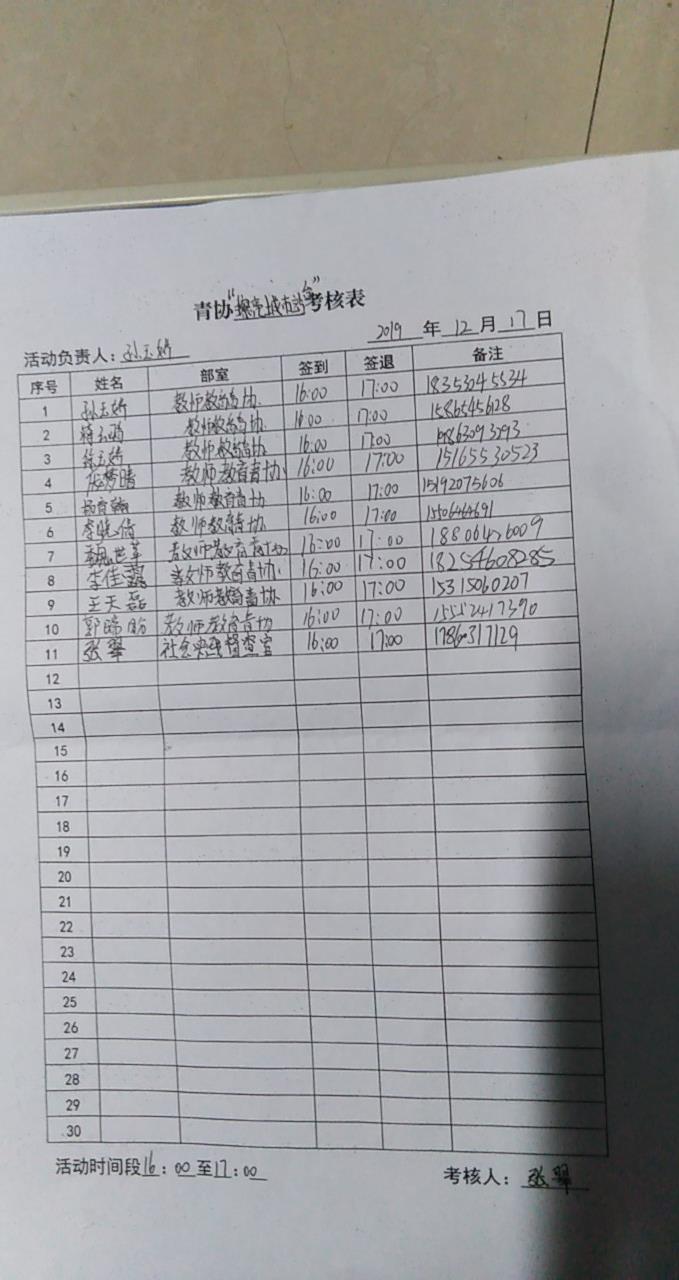 青协"擦亮城市站台"考核表
2019 年 12 月 17 日
活动负责人：孙玉娇
序号 姓名 部室 签到 签退 备注
1 孙玉娇 教师教育青协 16:00 17:00 18353045534
2 教师教育青协 16:00 17:00 1586545628
3 徐玉娇 教师教育青协 16:00 17:00
4 梦晴 教师教育青协 16:00 17:00 15165530523
5 教师教育青协 16:00 17:00 15192075606
6 李晓倩 教师教育青协 16:00 17:00
7 魏世莘 教师教育青协 16:00 17:00 18806426009
8 李佳露 教师教育青协 16:00 17:00 18254608285
9 王天磊 教师教育青协 16:00 17:00 15315060207
10 郭瑞盼 教师教育青协 16:00 17:00 15552417390
11 张翠 社会实践督查室 16:00 17:00
12
13
14
15
16
17
18
19
20
21
22
23
24
25
26
27
28
29
30
活动时间段16：00至17：00 考核人：张翠